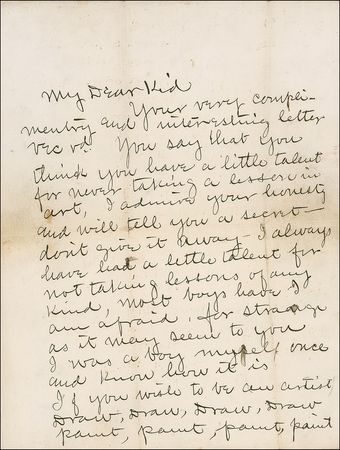 My Dear Kid
Your very compli-
mentry and interesting letter
rec vd. You say that you
think you have a little talent
for never taking a lesson in
art, I admire your honesty
and will tell you a secret-
dont give it away- I always
have had a little talent for
not taking lessons of any
kind, most boys have I
am afraid, for strange
as it may seem to you
I was a boy myself once
and know how it is
If you wish to be an artist,
Draw, Draw, Draw, Draw
paint, paint, paint, paint